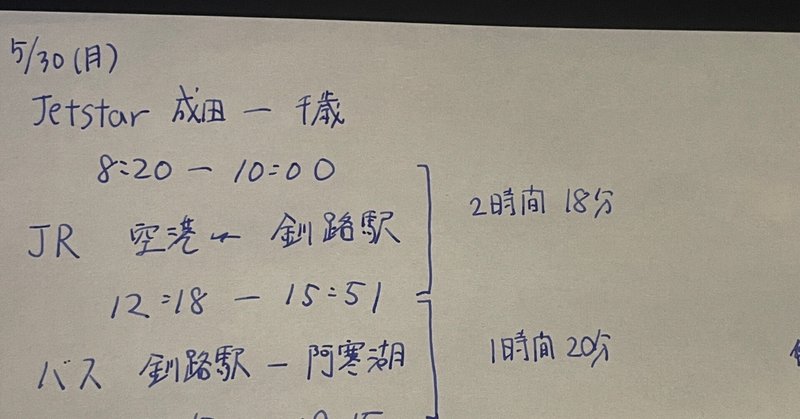 5/30(月)
Jetstar 成田 ー 千歳
8:20 ー 10:00
2時間 18分
JR 空港 ー 釧路駅
12:18 ー 15:51
1時間 20分
バス 釧路駅 ー 阿寒湖